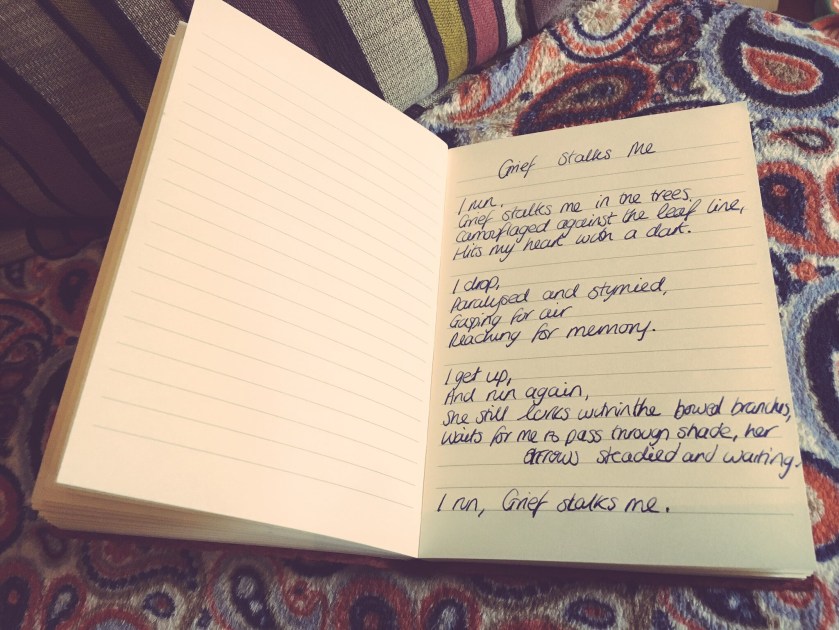 Grief Stalks Me
I run,
Grief stalks me in the trees,
camouflaged against the leaf line,
Hits my heart with a dart.
I drop,
Paralysed and stymied,
Gasping for air
Reaching for memory.
I get up,
And run again,
She still lurks within the bowed branches,
Waits for me to pass through shade, her
arrows steadied and waiting.
I run, Grief stalks me.